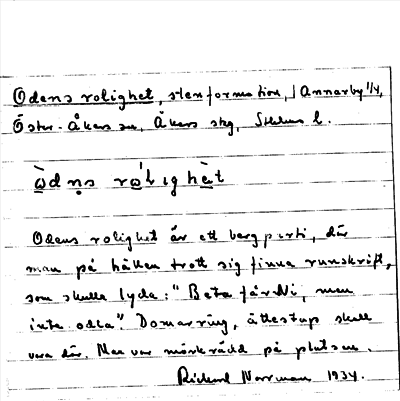 Odens rolighet, stenformation, J Annarby 1/4,
Öster-Åkers sn, Åkers skg, Sthlms l.
ὼdn̥s rώlighèt
Odens rolighet är ett bergparti, där
man på hällen trott sig finna runskrift,
som skulle lyda: "Beta får Ni, men
inte odla". Domarring, ättestup skall
vara där. Man var mörkrädd på platsen.
Rickard Norrman 1934.